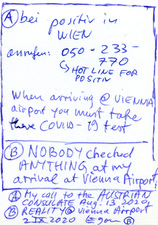 (A) bei positiv in
WIEN
anrufen: 050 - 233 -
770
↳ HOT LINE FOR
POSITIV
When arriving @ VIENNA
airport you must take
there COVID-19 test
(B) NOBODY checked
ANYTHING at my
arrival at Vienna Airport!
(A) My call to the AUSTRIAN
CONSULATE Aug. 13 2020
(B) REALITY @ Vienna Airport
2 IX 2020 Egon (B)